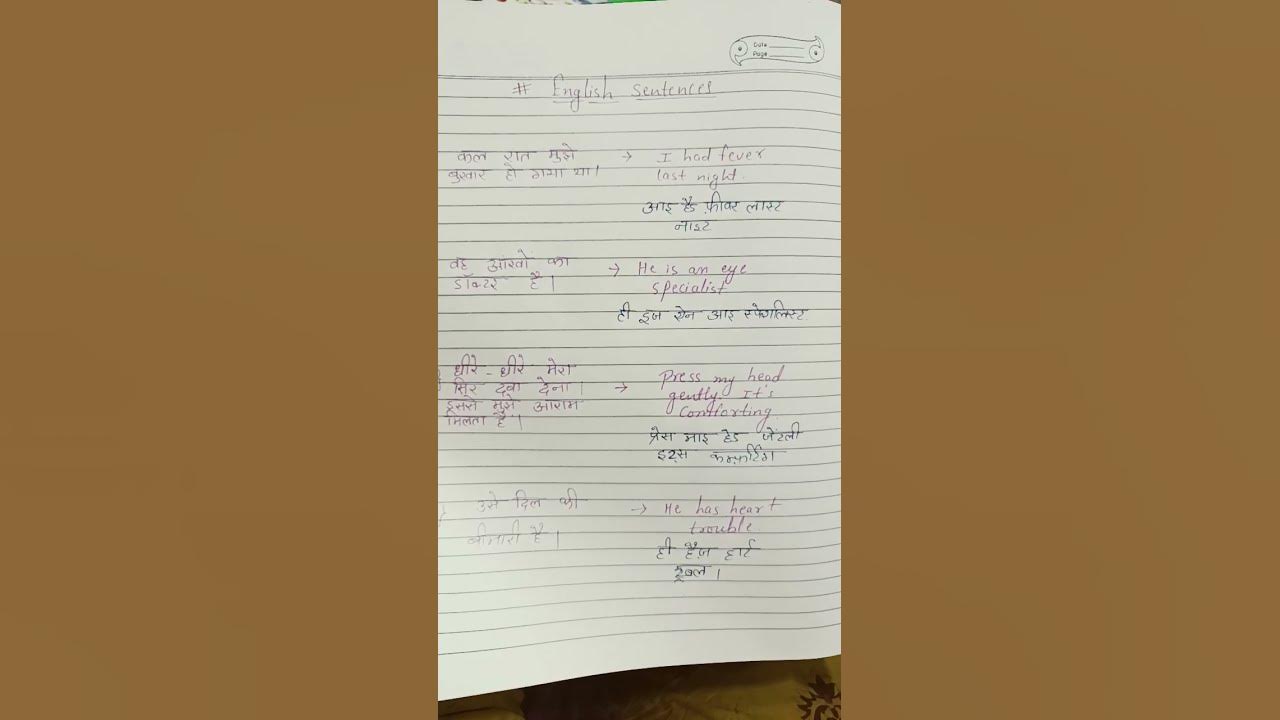 Date
Page
# English Sentences
कल रात मुझे → I had fever
बुखार हो गया था। last night.
आइ हैड फ़ीवर लास्ट
नाइट
वह आंखो का → He is an eye
डॉक्टर है। specialist
ही इज ऐन आइ स्पेशलिस्ट
धीरे - धीरे मेरा Press my head
सिर दबा देना। → gently. It's
इससे मुझे आराम comforting.
मिलता है।
प्रेस माइ हेड जेंटली
इट्स कम्फ़र्टिंग
उसे दिल की → He has heart
बीमारी है। trouble.
ही हैज़ हार्ट
ट्रबल।